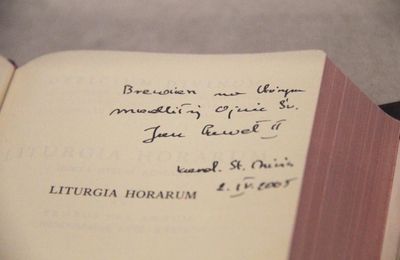 Brewiarz na którym
modlił się Ojciec Św.
Jan Paweł II
kard. St.
2.IV.2005
LITURGIA HORARUM